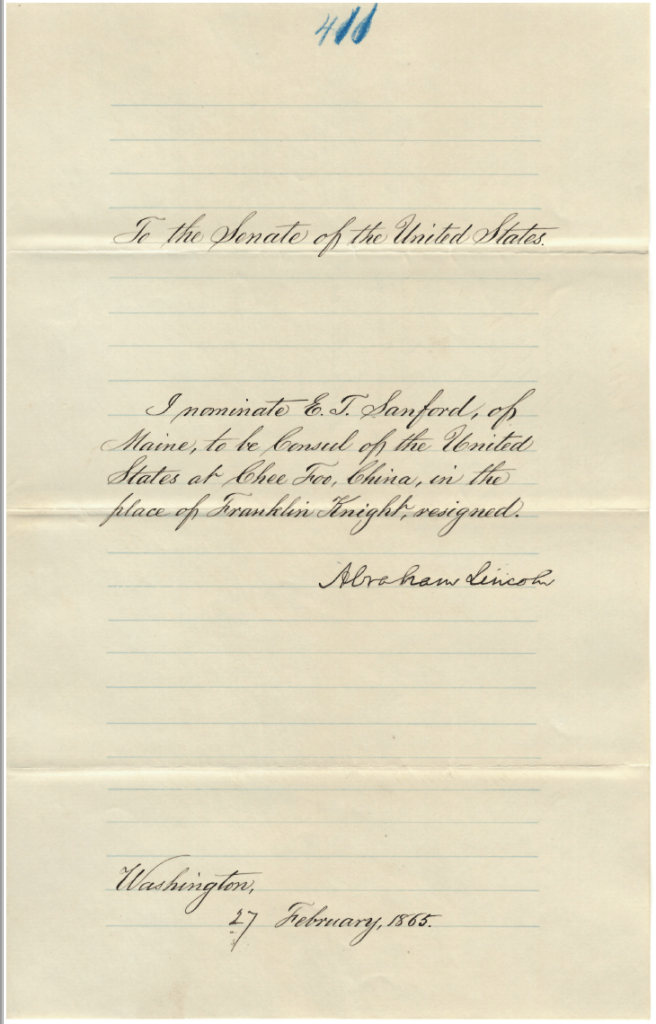 To the Senate of the United States.
I nominate E. T. Sanford, of
Maine, to be Consul of the United
States at Chee Foo, China, in the
place of Franklin Knight, resigned.
Abraham Lincoln
Washington,
27 February, 1865.